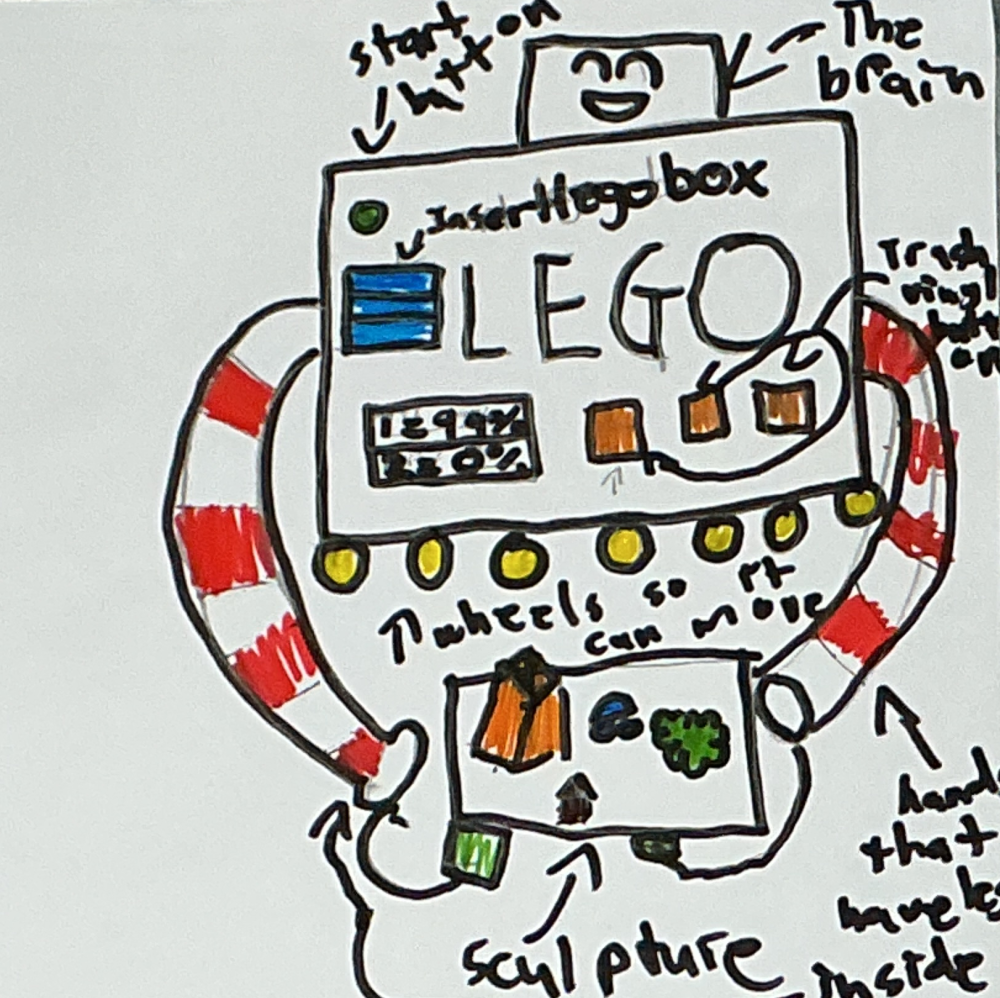 start
button
The
brain
Insert lego box
LEGO
Trash
1299%
220%
wheels so it
can move
hands
that
have
inside
sculpture